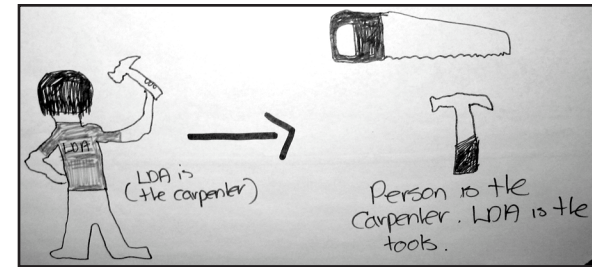 LDA
LDA is
(the carpenter)
Person is the
Carpenter. LDA is the
tools.